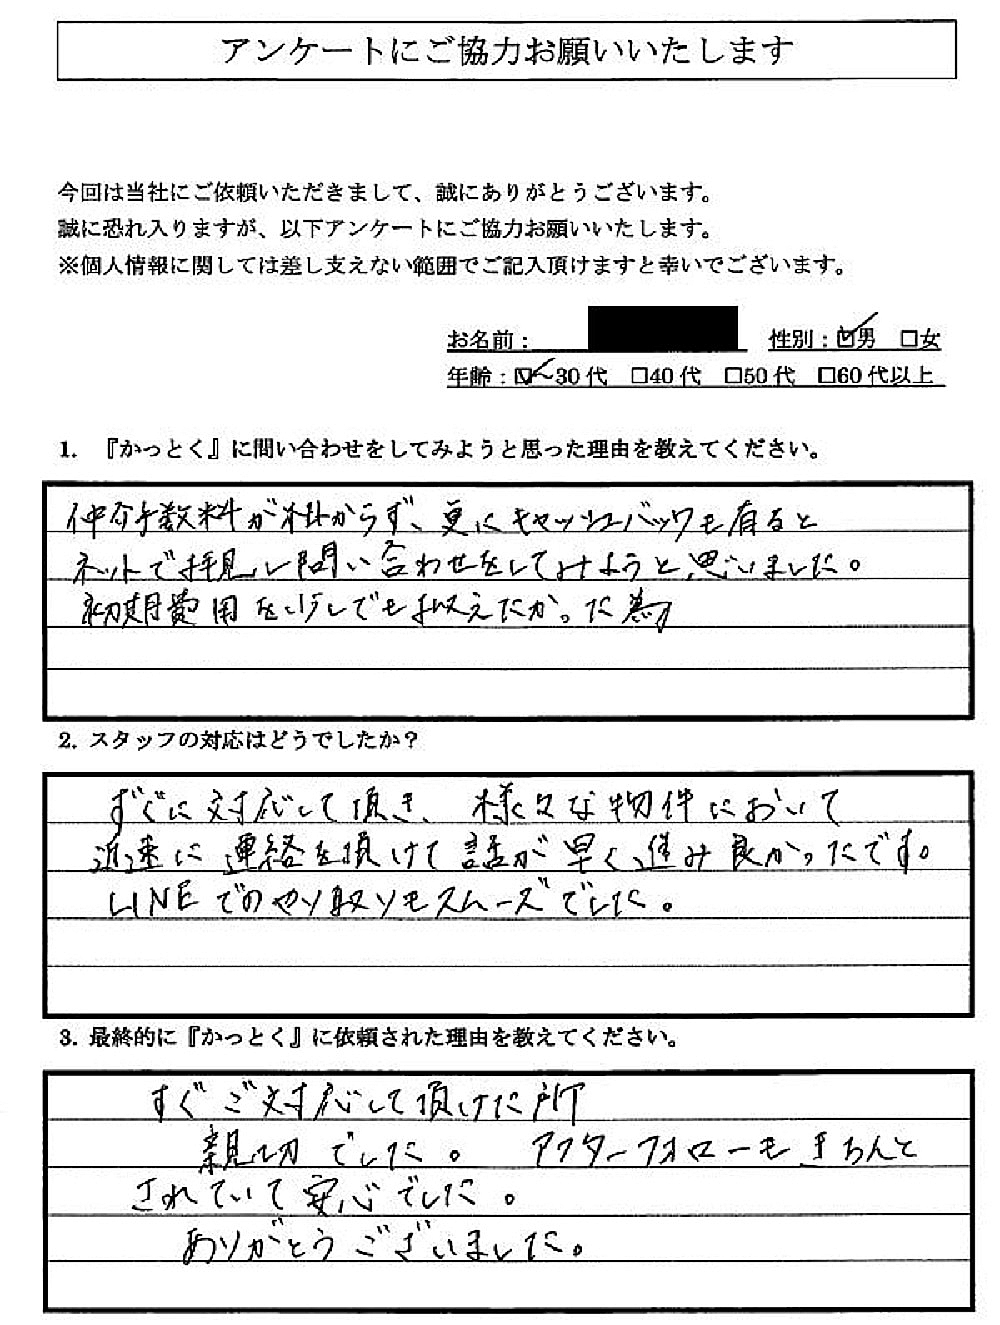 アンケートにご協力お願いいたします
今回は当社にご依頼いただきまして、誠にありがとうございます。
誠に恐れ入りますが、以下アンケートにご協力お願いいたします。
※個人情報に関しては差し支えない範囲でご記入頂けますと幸いでございます。
お名前： 性別：☑男 □女
年齢：☑～30代 □40代 □50代 □60代以上
1. 『かっとく』に問い合わせをしてみようと思った理由を教えてください。
仲介手数料が掛からず、更にキャッシュバックも有ると
ネットで拝見し問い合わせをしてみようと思いました。
初期費用を少しでも抑えたかった為
2. スタッフの対応はどうでしたか？
すぐに対応して頂き、様々な物件において
迅速に連絡を頂けて話が早く進み良かったです。
LINEでのやり取りもスムーズでした。
3. 最終的に『かっとく』に依頼された理由を教えてください。
すぐご対応して頂けた所
親切でした。アフターフォローもきちんと
されていて安心でした。
ありがとうございました。